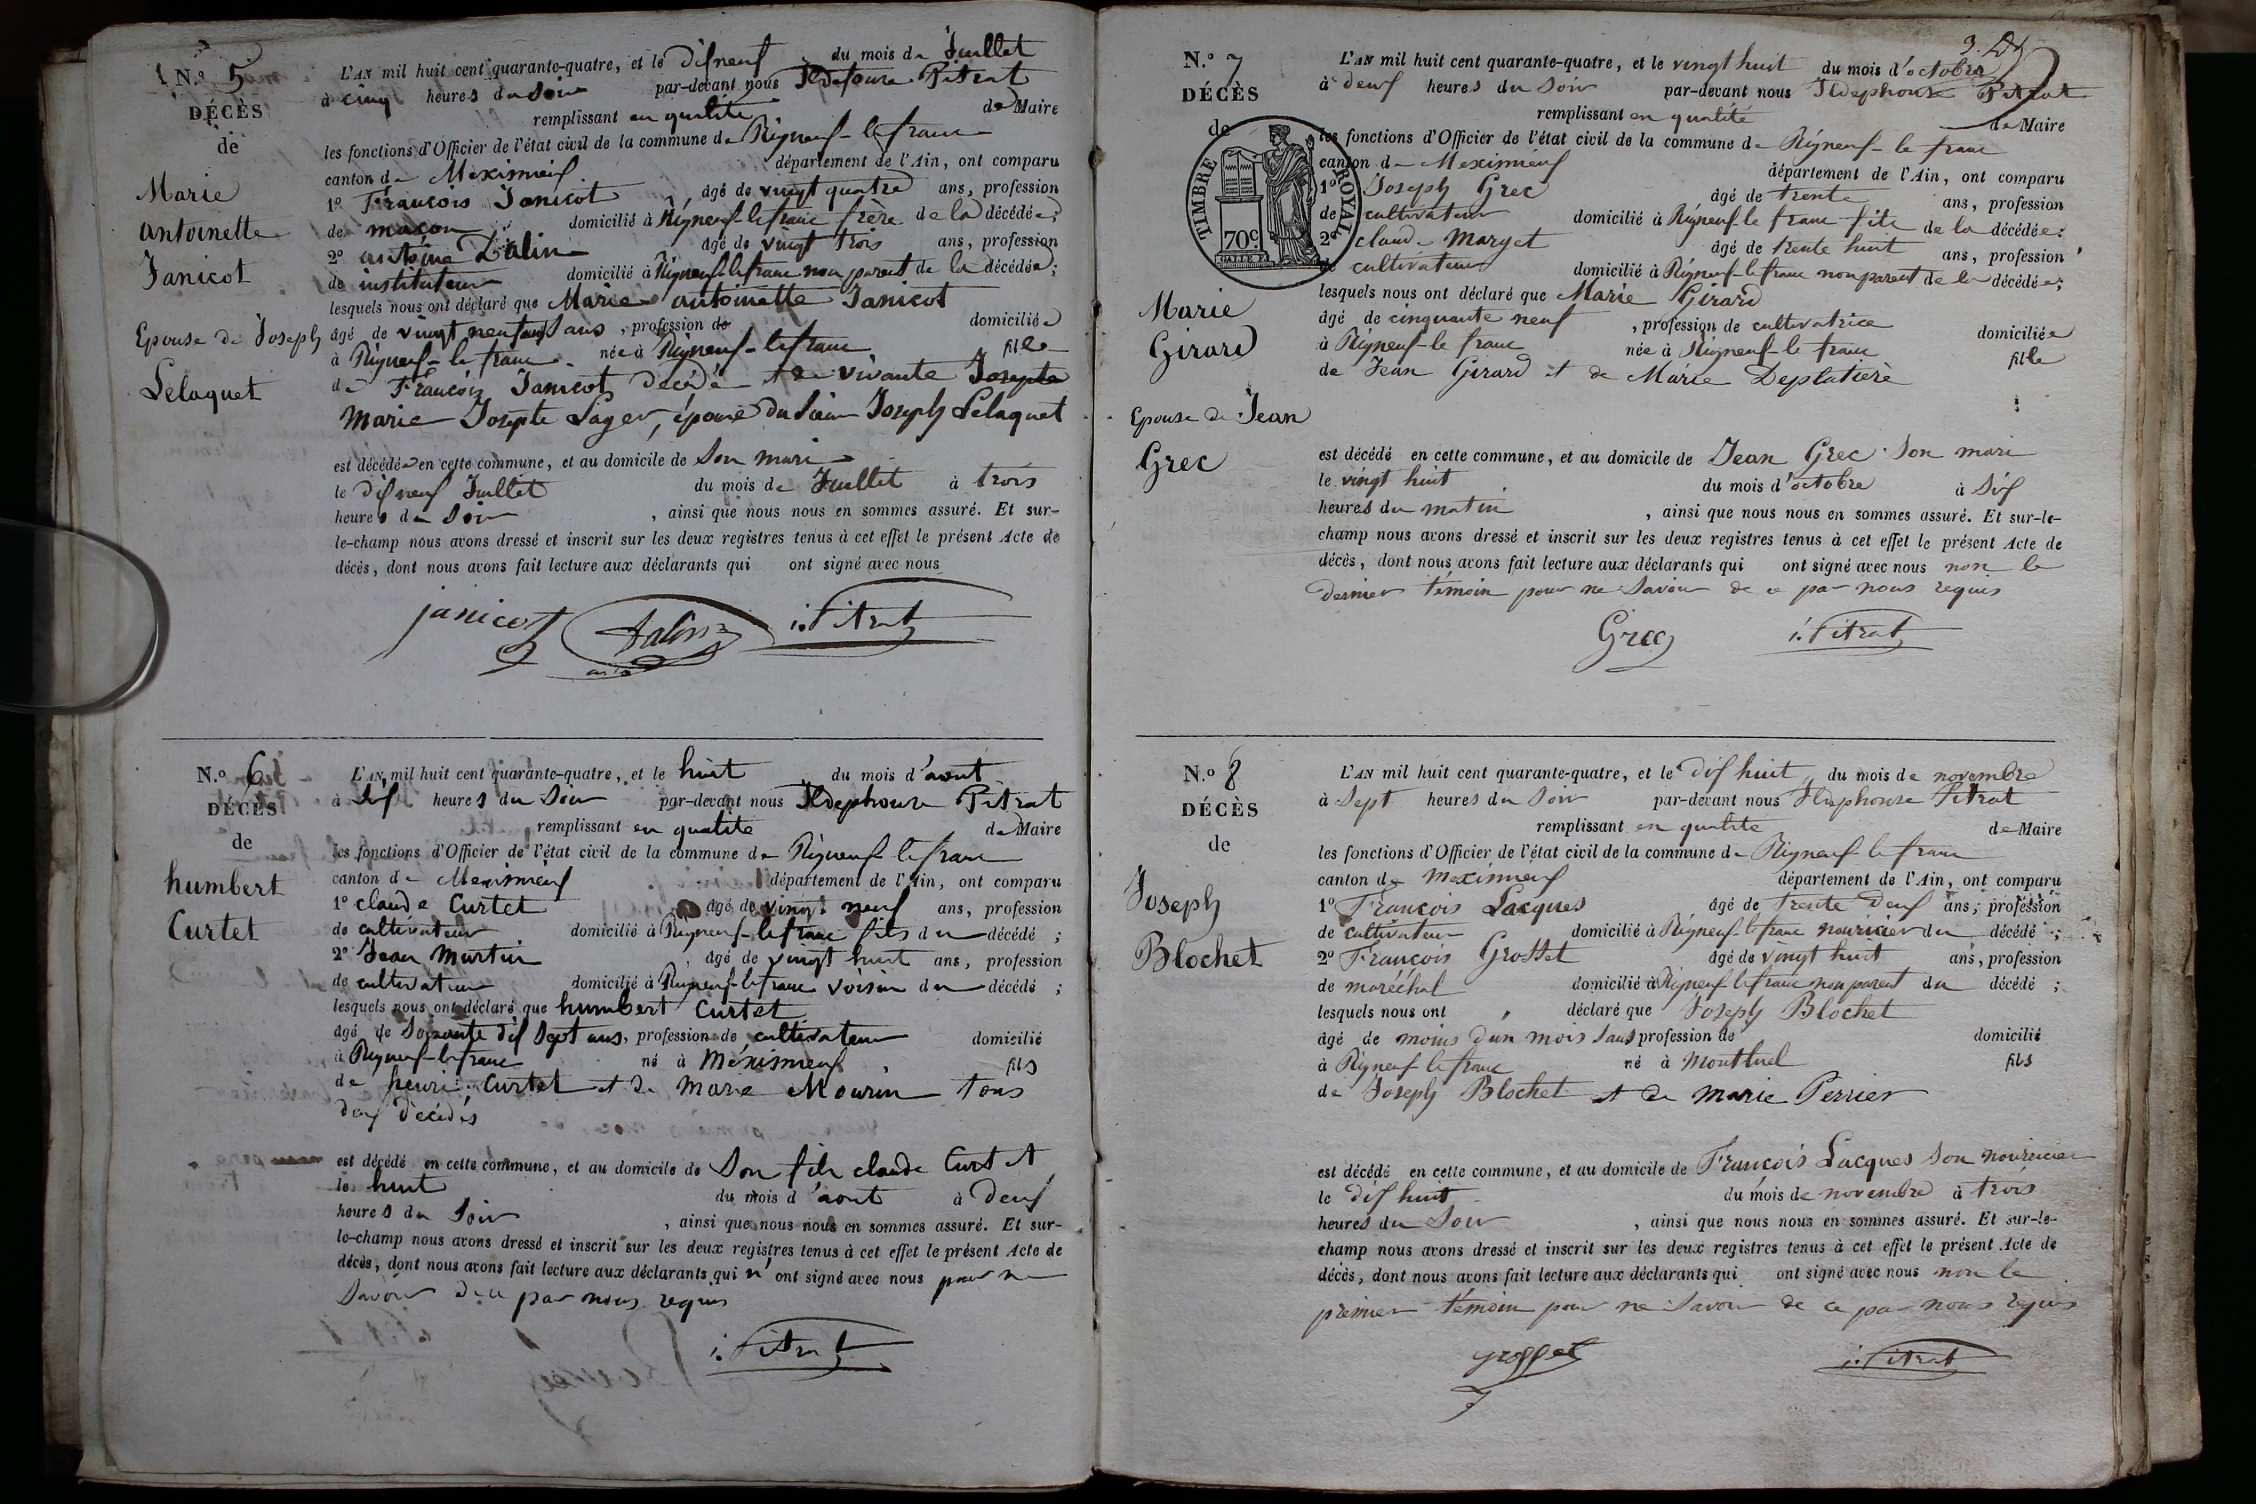 N.º 5
DÉCÈS
de
Marie
antoinette
Janicot
Epouse de Joseph
Lelaquet
L'AN mil huit cent quarante-quatre, et le dixneuf du mois de Juillet
à cinq heures du soir par-devant nous Ildefonse Pitrat
remplissant en qualité de Maire
les fonctions d'Officier de l'état civil de la commune de Rigneux-le franc
canton de Meximieux département de l'Ain, ont comparu
1º François Janicot âgé de vingt quatre ans, profession
de maçon domicilié à Rigneux-le franc frère de la décédée;
2º antoine Dalin âgé de vingt trois ans, profession
de instituteur domicilié à Rigneux-le franc non parent de la décédée;
lesquels nous ont déclaré que Marie antoinette Janicot
âgé de vingt neuf ans, profession de domiciliée
à Rigneux-le franc née à Rigneux-le franc fille
de François Janicot décédé et de vivante Josepte
Marie Josepte Lager, épouse du sieur Joseph Lelaquet
est décédée en cette commune, et au domicile de son mari
le dixneuf Juillet du mois de Juillet à trois
heures du soir, ainsi que nous nous en sommes assuré. Et sur-
le-champ nous avons dressé et inscrit sur les deux registres tenus à cet effet le présent Acte de
décès, dont nous avons fait lecture aux déclarants qui ont signé avec nous
janicot Dalin i. Pitrat
N.º 6
DÉCÈS
de
humbert
Curtet
L'AN mil huit cent quarante-quatre, et le huit du mois d'aout
à six heures du soir par-devant nous Ildephonse Pitrat
remplissant en qualité de Maire
les fonctions d'Officier de l'état civil de la commune de Rigneux le franc
canton de Meximieux département de l'Ain, ont comparu
1º claude Curtet âgé de vingt neuf ans, profession
de cultivateur domicilié à Rigneux-le franc fils du décédé;
2º Jean Martin âgé de vingt huit ans, profession
de cultivateur domicilié à Rigneux-le franc voisin du décédé;
lesquels nous ont déclaré que humbert Curtet
âgé de soixante dix sept ans, profession de cultivateur domicilié
à Rigneux-le franc né à Méximieux fils
de henri Curtet et de marie Mourin tous
deux décédés
est décédé en cette commune, et au domicile de son fils claude Curtet
le huit du mois d'aout à deux
heures du soir, ainsi que nous nous en sommes assuré. Et sur-
le-champ nous avons dressé et inscrit sur les deux registres tenus à cet effet le présent Acte de
décès, dont nous avons fait lecture aux déclarants qui n'ont signé avec nous pour ne
savoir de ce par nous requis
i. Pitrat
N.º 7
DÉCÈS
de
TIMBRE ROYAL
70c.
Marie
Girard
Epouse de Jean
Grec
L'AN mil huit cent quarante-quatre, et le vingt huit du mois d'octobre
à deux heures du soir par-devant nous Ildephonse Pitrat
remplissant en qualité de Maire
les fonctions d'Officier de l'état civil de la commune de Rigneux-le franc
canton de Meximieux département de l'Ain, ont comparu
1º Joseph Grec âgé de trente ans, profession
de cultivateur domicilié à Rigneux-le franc fils de la décédée;
2º claude Maryet âgé de trente huit ans, profession
de cultivateur domicilié à Rigneux-le franc non parent de la décédée;
lesquels nous ont déclaré que Marie Girard
âgé de cinquante neuf, profession de cultivatrice domiciliée
à Rigneux-le franc née à Rigneux-le franc fille
de Jean Girard et de Marie Deplatière
est décédé en cette commune, et au domicile de Jean Grec son mari
le vingt huit du mois d'octobre à six
heures du matin, ainsi que nous nous en sommes assuré. Et sur-le-
champ nous avons dressé et inscrit sur les deux registres tenus à cet effet le présent Acte de
décès, dont nous avons fait lecture aux déclarants qui ont signé avec nous non le
dernier témoin pour ne savoir de ce par nous requis
Grec i. Pitrat
N.º 8
DÉCÈS
de
Joseph
Blochet
L'AN mil huit cent quarante-quatre, et le dix huit du mois de novembre
à sept heures du soir par-devant nous Ildephonse Pitrat
remplissant en qualité de Maire
les fonctions d'Officier de l'état civil de la commune de Rigneux le franc
canton de meximieux département de l'Ain, ont comparu
1º François Lacques âgé de trente deux ans, profession
de cultivateur domicilié à Rigneux-le franc nouricier du décédé;
2º François Grosset âgé de vingt huit ans, profession
de maréchal domicilié à Rigneux le franc non parent du décédé;
lesquels nous ont déclaré que Joseph Blochet
âgé de moins d'un mois sans profession de domicilié
à Rigneux le franc né à Montluel fils
de Joseph Blochet et de marie Perrier
est décédé en cette commune, et au domicile de François Lacques son nouricier
le dix huit du mois de novembre à trois
heures du soir, ainsi que nous nous en sommes assuré. Et sur-le-
champ nous avons dressé et inscrit sur les deux registres tenus à cet effet le présent Acte de
décès, dont nous avons fait lecture aux déclarants qui ont signé avec nous non le
premier témoin pour ne savoir de ce par nous requis
grosset i. Pitrat